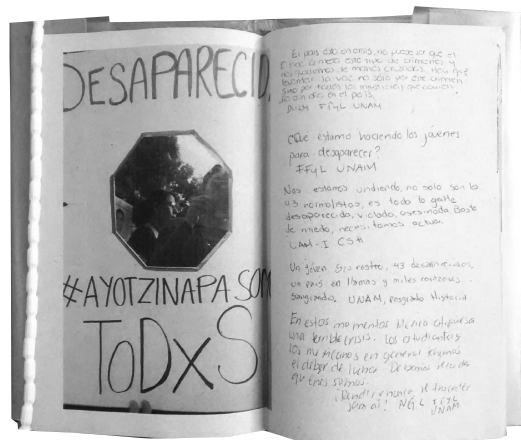 DESAPARECID
#AYOTZINAPA SOM
ToDxS
El país está en crisis, no puede ser que el
este tipo de crímenes y
nos quedemos de manos cruzadas. Hay que
levantar la voz no sólo por este crimen
sino por todas las injusticias que ocurren
día con día en el país.
FFyL UNAM
¿Que estamos haciendo los jóvenes
para desaparecer?
FFyL UNAM
Nos estamos undiendo, no solo son los
43 normalistas, es toda la gente
desaparecida, violada, asesinada. Basta
de miedo, necesitamos actuar.
UAM-I CSH
Un jóven sin rostro, 43 desaparecidos,
un país en llamas y miles
Sangrando, UNAM, posgrado Historia
En estos momentos México atraviesa
una terrible crisis. Los estudiantes y
los mexicanos en general tenemos
el deber de luchar. Debemos recordar
que
¡
será así! NGL FFyL
UNAM